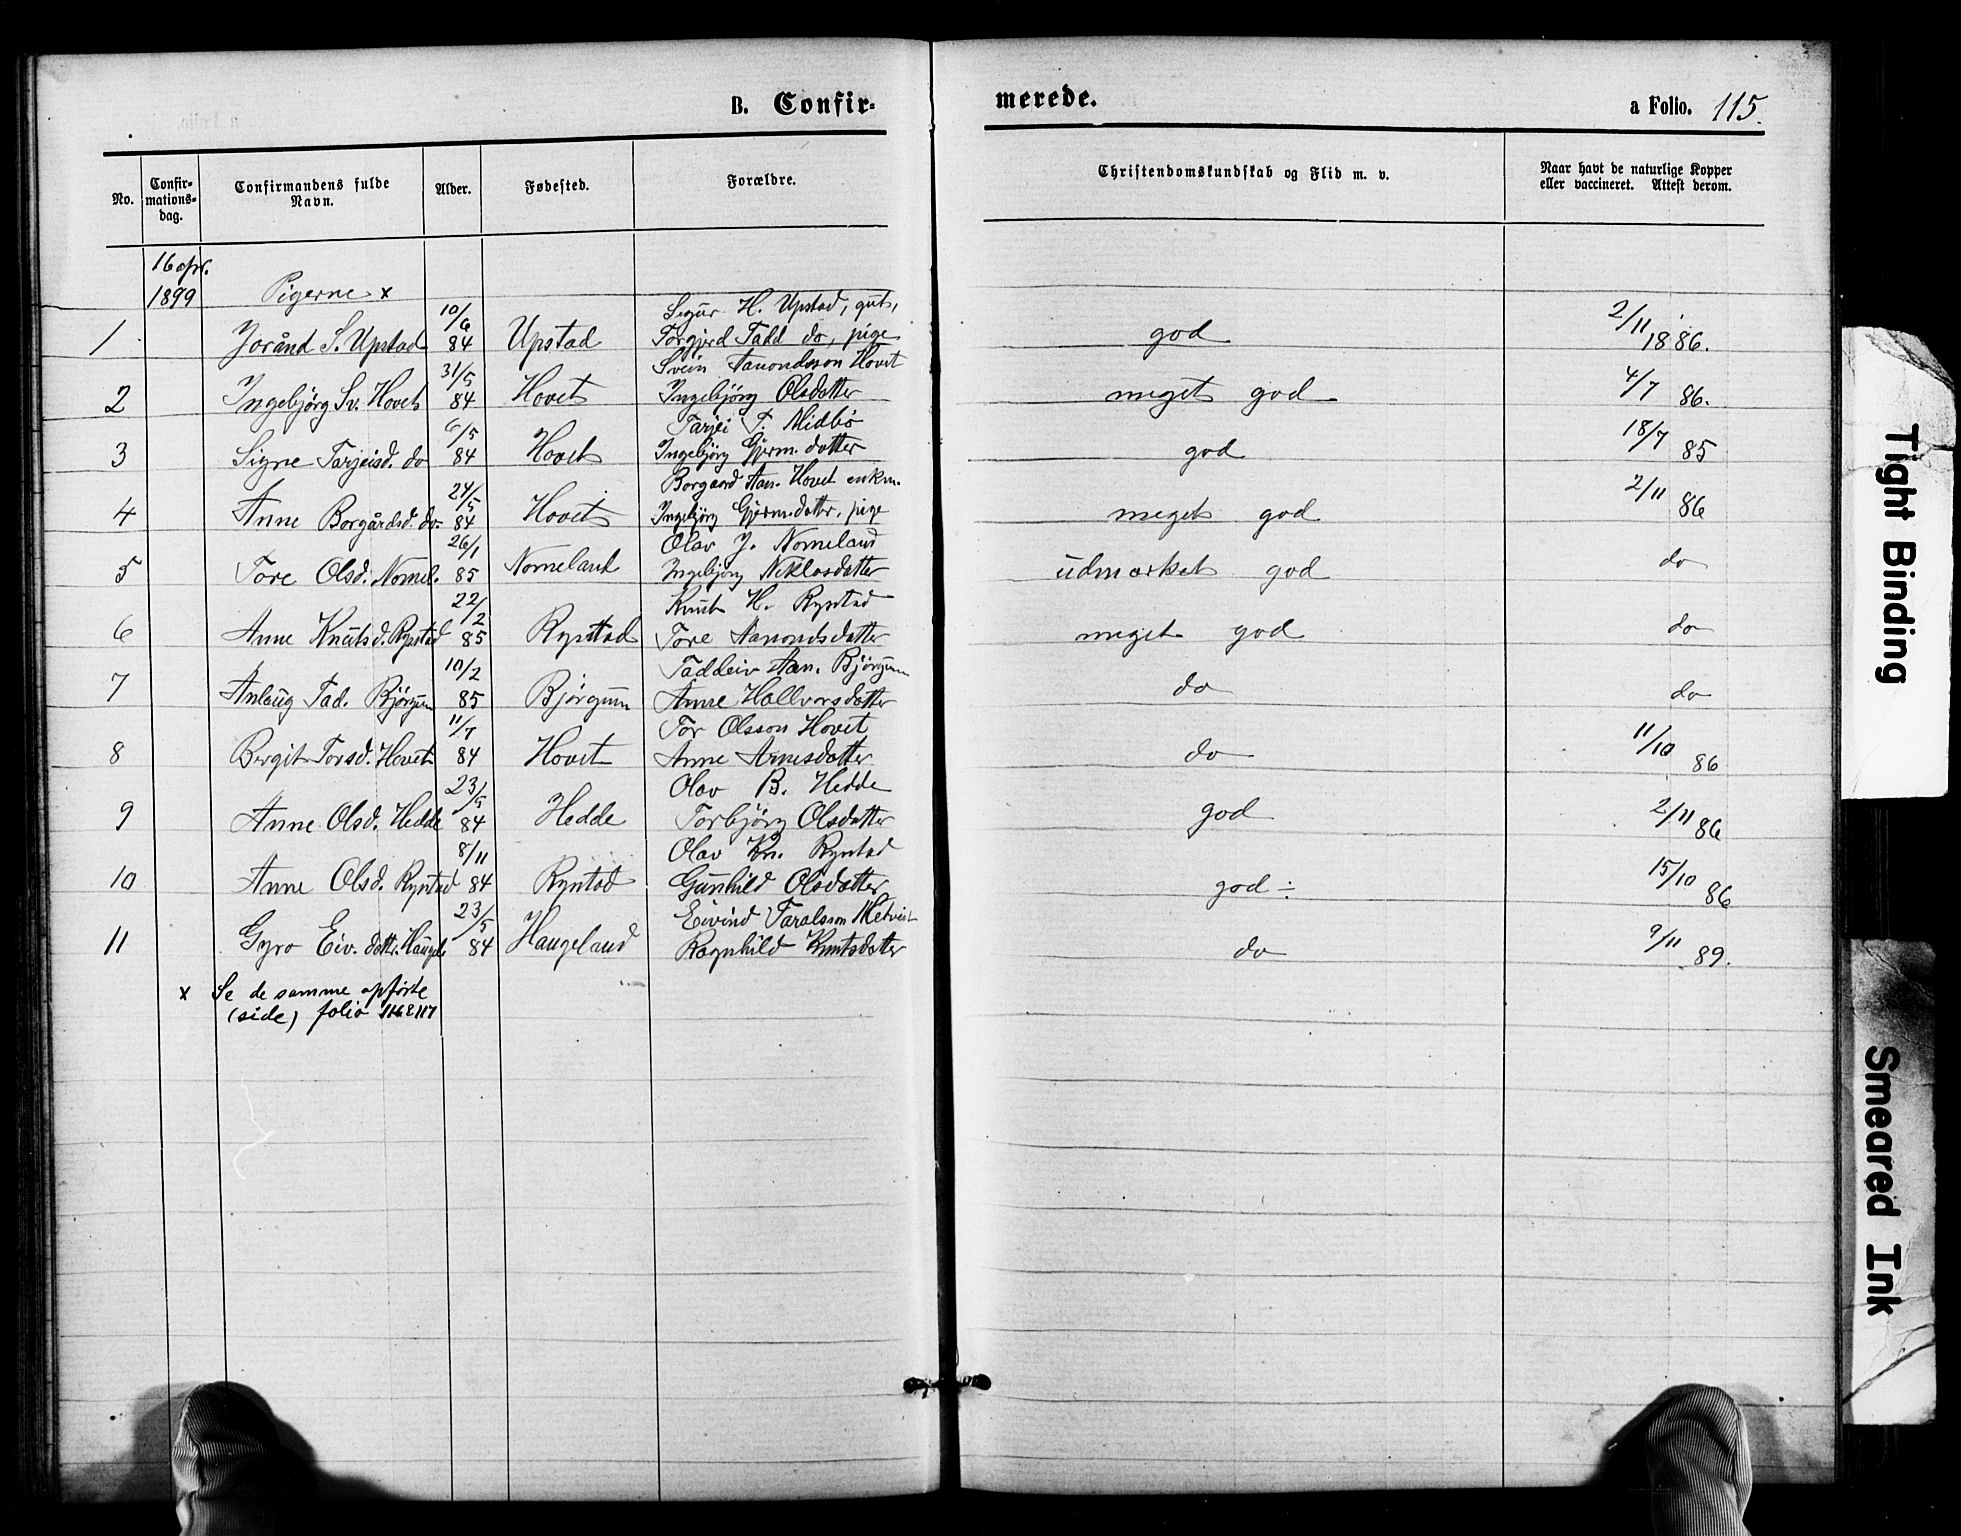 B. Confir-
merede.
a Folio. 115.
No.
Confir-
mations-
dag.
Confirmandens fulde
Navn.
Alder.
Fødested.
Forældre.
Christendomskundskab og Flid m. v.
Naar havt de naturlige Kopper
eller vaccineret. Attest derom.
16 apr.
1899 Pigerne x
10/6 Sigur H. Upstad, gut, 2/11
1 Joránd S. Upstad 84 Upstad Torgjerd Tadd do, pige god 1886.
31/5 Svein Aanondsson Hovet
2 Ingebjörg Sv. Hovet 84 Hovet Ingebjörg Olsdatter meget god 4/7 86.
6/5 Tarjei T. Midbö
3 Signe Tarjeisd. do 84 Hovet Ingebjörg Gjerm. datter god 18/7 85
24/5 Borgaard Aan. Hovet enkm.
4 Anne Borgårdsd. do- 84 Hovet Ingebjörg Gjermdatter, pige meget god 2/11 86
26/1 Olav J. Nomeland
5 Tore Olsd. Nomel. 85 Nomeland Ingebjörg Niklosdatter udmærket god do
22/2 Knut H. Rysstad
6 Anne Knutsd. Rysstad 85 Rysstad Tore Aanondsdatter meget god do
10/2 Taddeiv Aan. Björgum
7 Anlaug Tad. Björgum 85 Björgum Anne Hallvorsdatter do do
11/7 Tor Olsson Hovet
8 Bergit Torsd. Hovet 84 Hovet Anne Arnesdatter do 11/10 86
23/5 Olav B. Hedde
9 Anne Olsd. Hedde 84 Hedde Torbjörg Olsdatter god 2/11 86
8/11 Olav Kn. Rysstad
10 Anne Olsd. Rysstad 84 Rysstad Gunhild Olsdatter god ÷ 15/10 86
23/5 Eivind Taralsson
11 Gyro Eiv. datter Haugel. 84 Haugeland Ragnhild Knutsdatter do 9/11 89.
x Se de samme opførte
(side) folio 116 & 117
Tight Binding
Smeared Ink